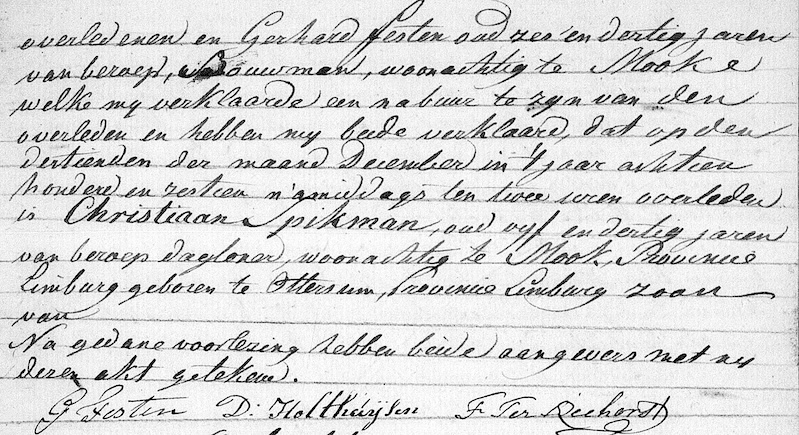 overledenen en Gerhard Festen oud zes en dertig jaren
van beroep, Bouwman, woonachtig te Mook e
welke my verklaarde een nabuur te zyn van den
overleden en hebben my beide verklaard, dat op den
dertienden der maand December in 't jaar achtien
honderd en zestien n'amiddags ten twee uren overleden
is Christiaan Spikman, oud vyf en dertig jaren
van beroep dagloner, woonachtig te Mook, Provincie
Limburg geboren te Ottersum, Provincie Limburg zoon
van
Na gedane voorlezing hebben beide aangevers met my
deren akt getekend.
G Festen D: Holthuysen F Ter